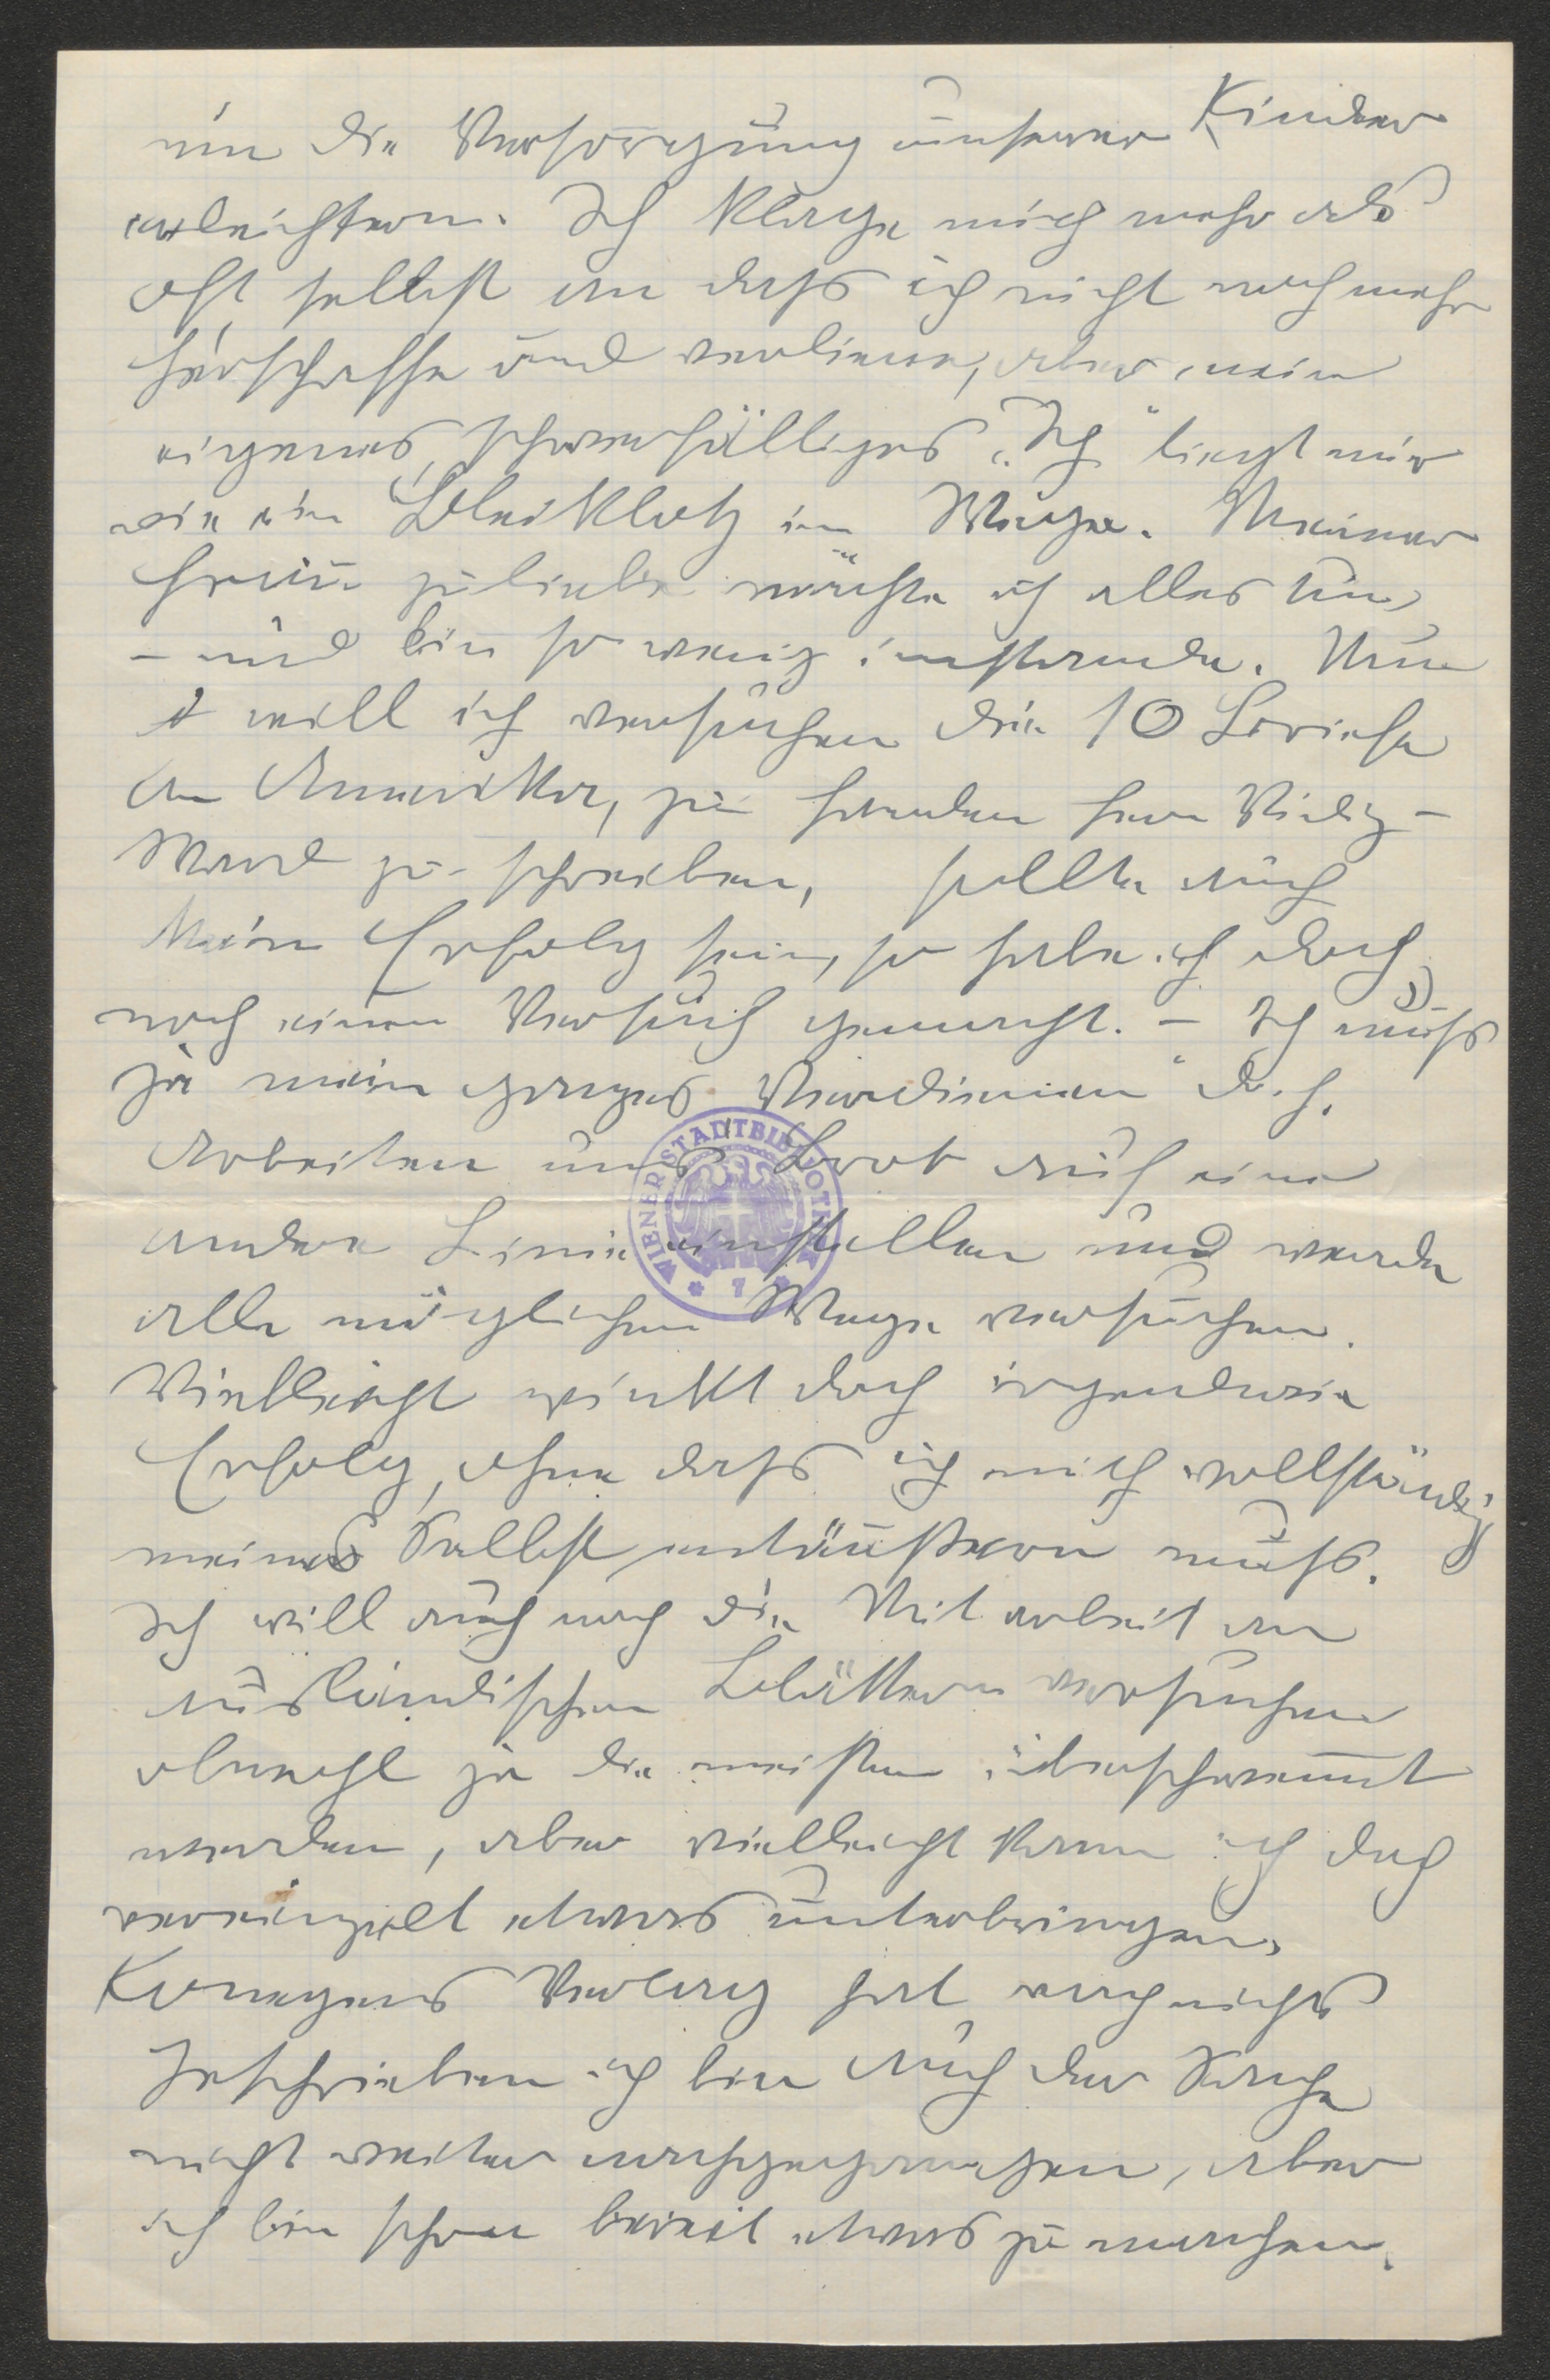 um die Versorgung unserer Kinder
erleichtern. Ich klage mich mehr als
oft selbst an dass ich nicht noch mehr
herschaffe und verdiene, aber mein
eigenes, schwerfälliges „Ich" liegt mir
wie ein Bleiklotz im Wege. Meiner
Frau zuliebe möchte ich alles tun,
– und bin so wenig imstande. Nun
will ich versuchen die 10 Briefe
an Amerika, zu handen Herrn
zu schreiben, sollte auch
kein Erfolg sein, so habe ich doch
noch einen Versuch gemacht. – Ich muss
ja mein ganzes „Verdienen" d. h.
Arbeiten ums Brot auf eine
andere Linie einstellen und werde
alle möglichen Wege versuchen.
Vielleicht winkt doch irgendwie
Erfolg, ohne dass ich mich vollständig
meines Selbst entäussern muss.
Ich will auch noch die Mitarbeit an
ausländischen Blättern versuchen
obwohl ja die meisten überschwemmt
werden, aber vielleicht kann ich doch
vereinzelt etwas unterbringen.
Konegens Verlag hat noch nichts
geschrieben ich bin auch der Sache
nicht weiter nachgegangen, aber
ich bin schon bereit etwas zu machen.
WIENER STADTBIBLIOTHEK
* 7 *